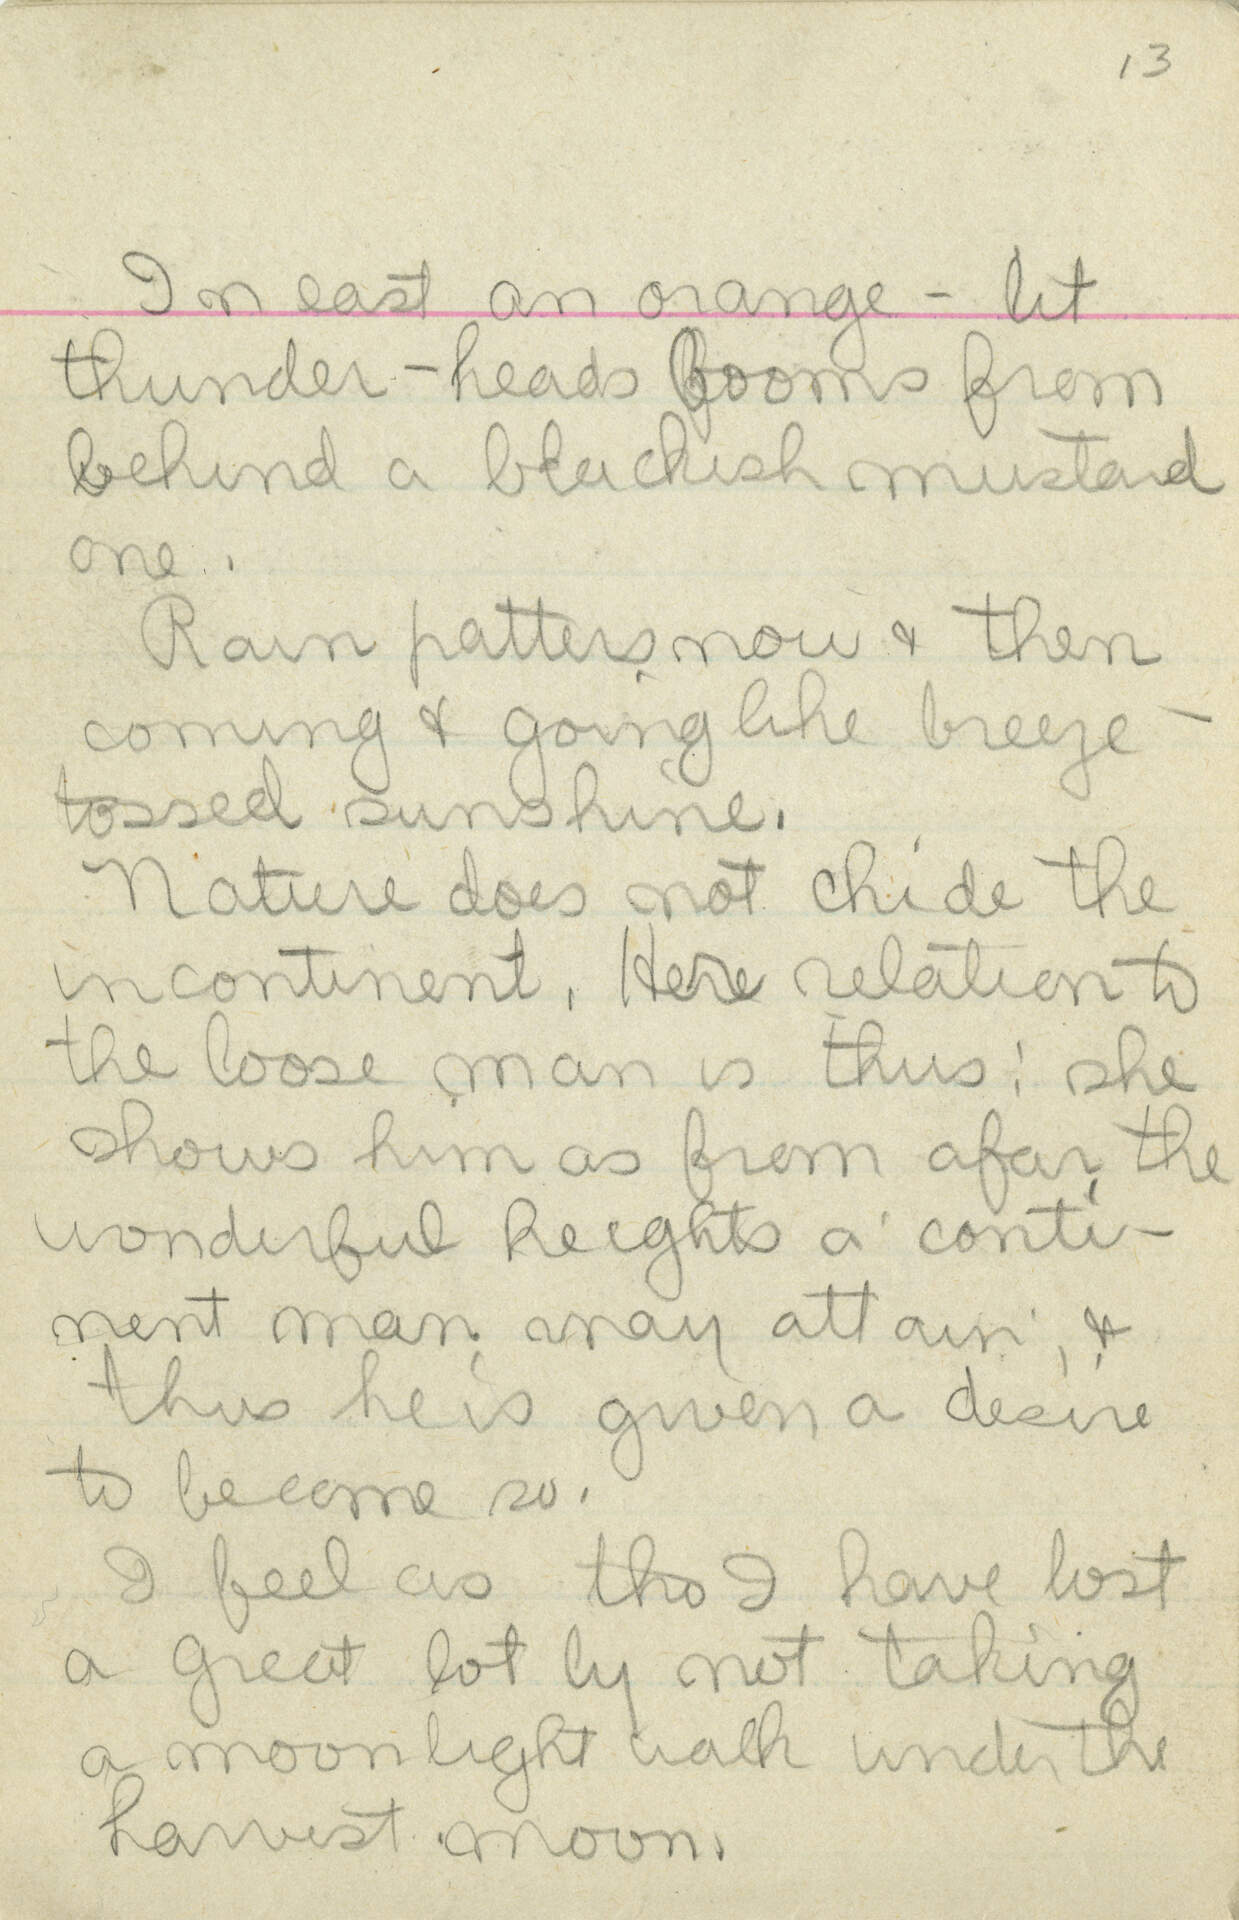 13
In east an orange - lit
thunder-heads looms from
behind a blackish mustard
one.
Rain patters, now & then
coming & going like breeze-
tossed sunshine.
Nature does not chide the
incontinent. Here relation to
the loose man is thus: she
shows him as from afar, the
wonderful heights a conti-
nent man may attain, &
thus he is given a desire
to become so.
I feel as tho I have lost
a great lot by not taking
a moonlight walk under the
harvest moon.